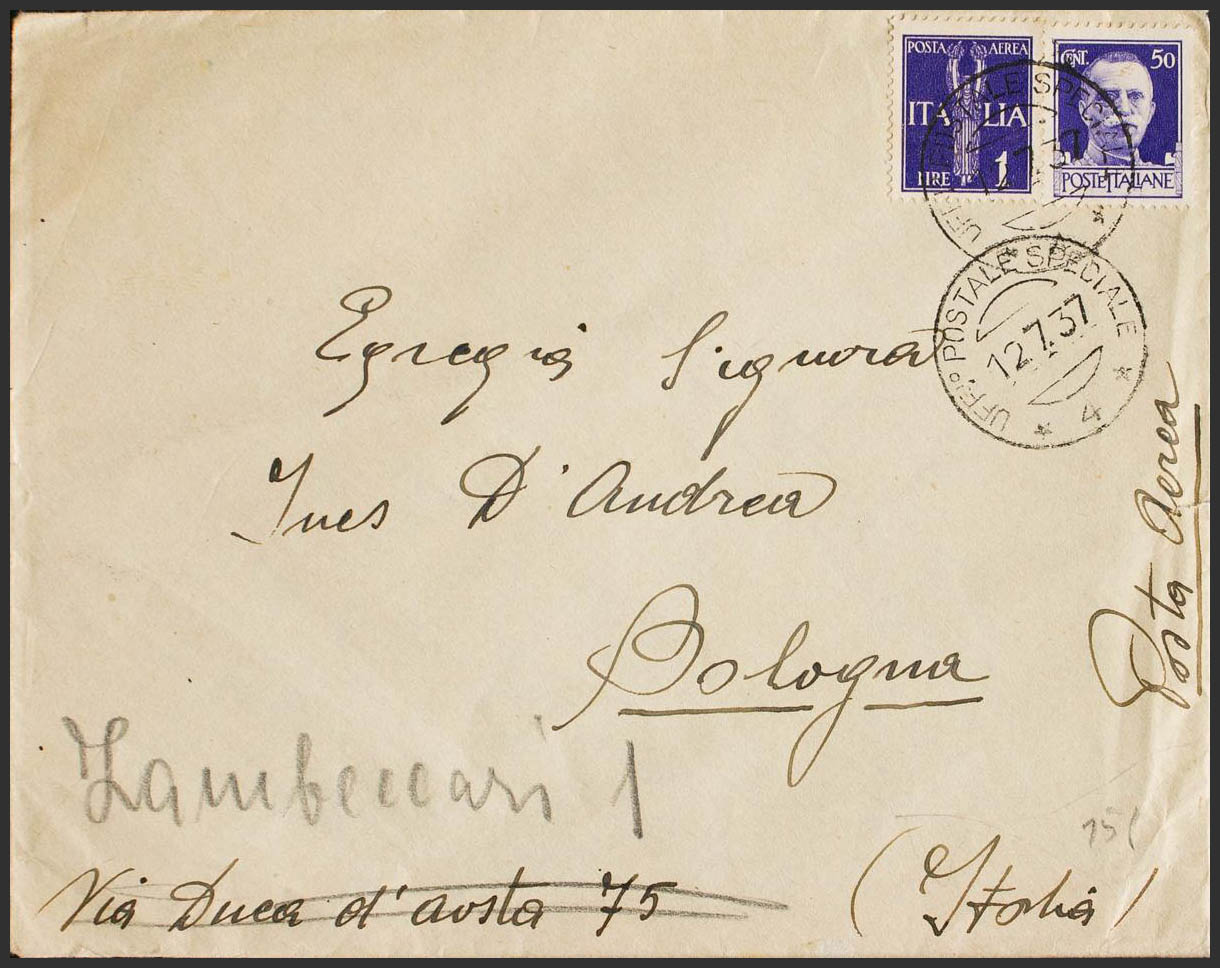 POSTA AEREA
ITALIA
LIRE 1
CENT. 50
POSTE ITALIANE
UFF.º POSTALE SPECIALE
12.7.37
UFF.º POSTALE SPECIALE
12.7.37
* 4 *
Egregia Signora
Ines D'Andrea
Bologna
Posta Aerea
Zambeccari 1
Via Duca d'aosta 75
(Italia)